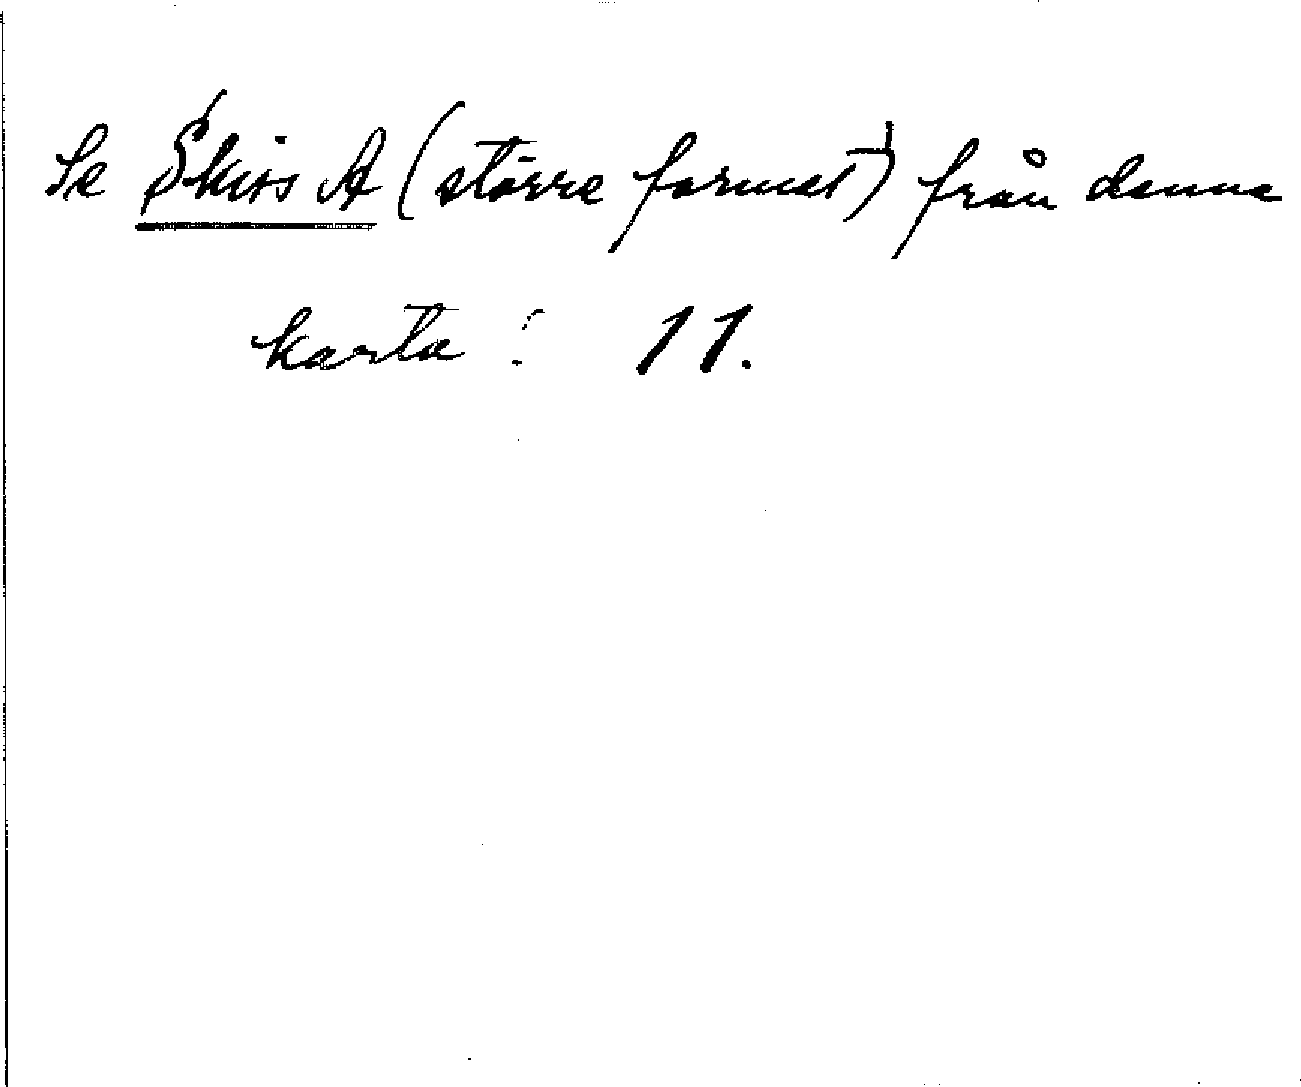 Se Skiss A (större format) från denna
karta! 11.